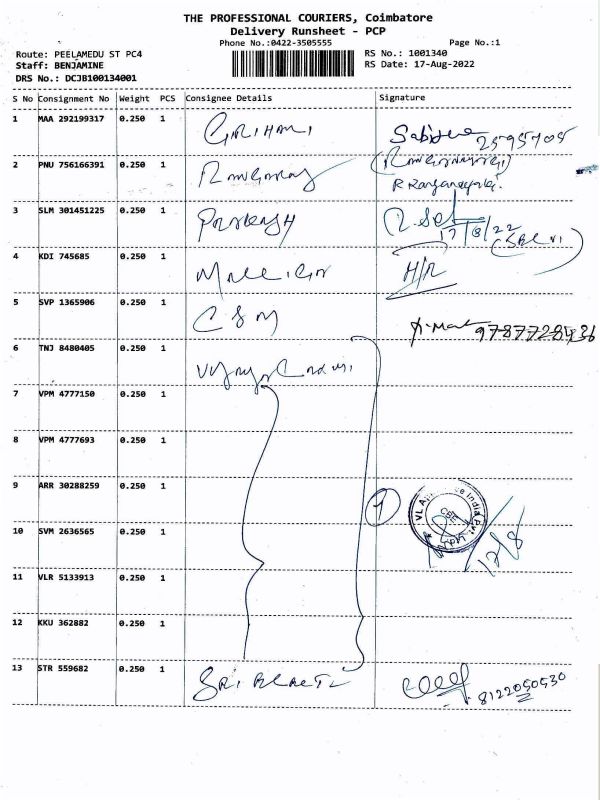 THE PROFESSIONAL COURIERS, Coimbatore
Delivery Runsheet - PCP
Phone No.:0422-3505555
Page No.:1
Route: PEELAMEDU ST PC4
RS No.: 1001340
Staff: BENJAMINE
RS Date: 17-Aug-2022
DRS No.: DCJB100134001
S No Consignment No Weight PCS Consignee Details Signature
1 MAA 292199317 0.250 1
2 PNU 756166391 0.250 1
3 SLM 301451225 0.250 1 Prakash
17/8/22
4 KDI 745685 0.250 1 H/R
5 SVP 1365906 0.250 1 CSM
9787728436
6 TNJ 8480405 0.250 1
7 VPM 4777150 0.250 1
8 VPM 4777693 0.250 1
9 ARR 30288259 0.250 1
10 SVM 2636565 0.250 1 17/8
11 VLR 5133913 0.250 1
12 KKU 362882 0.250 1
13 STR 559682 0.250 1 8122050530